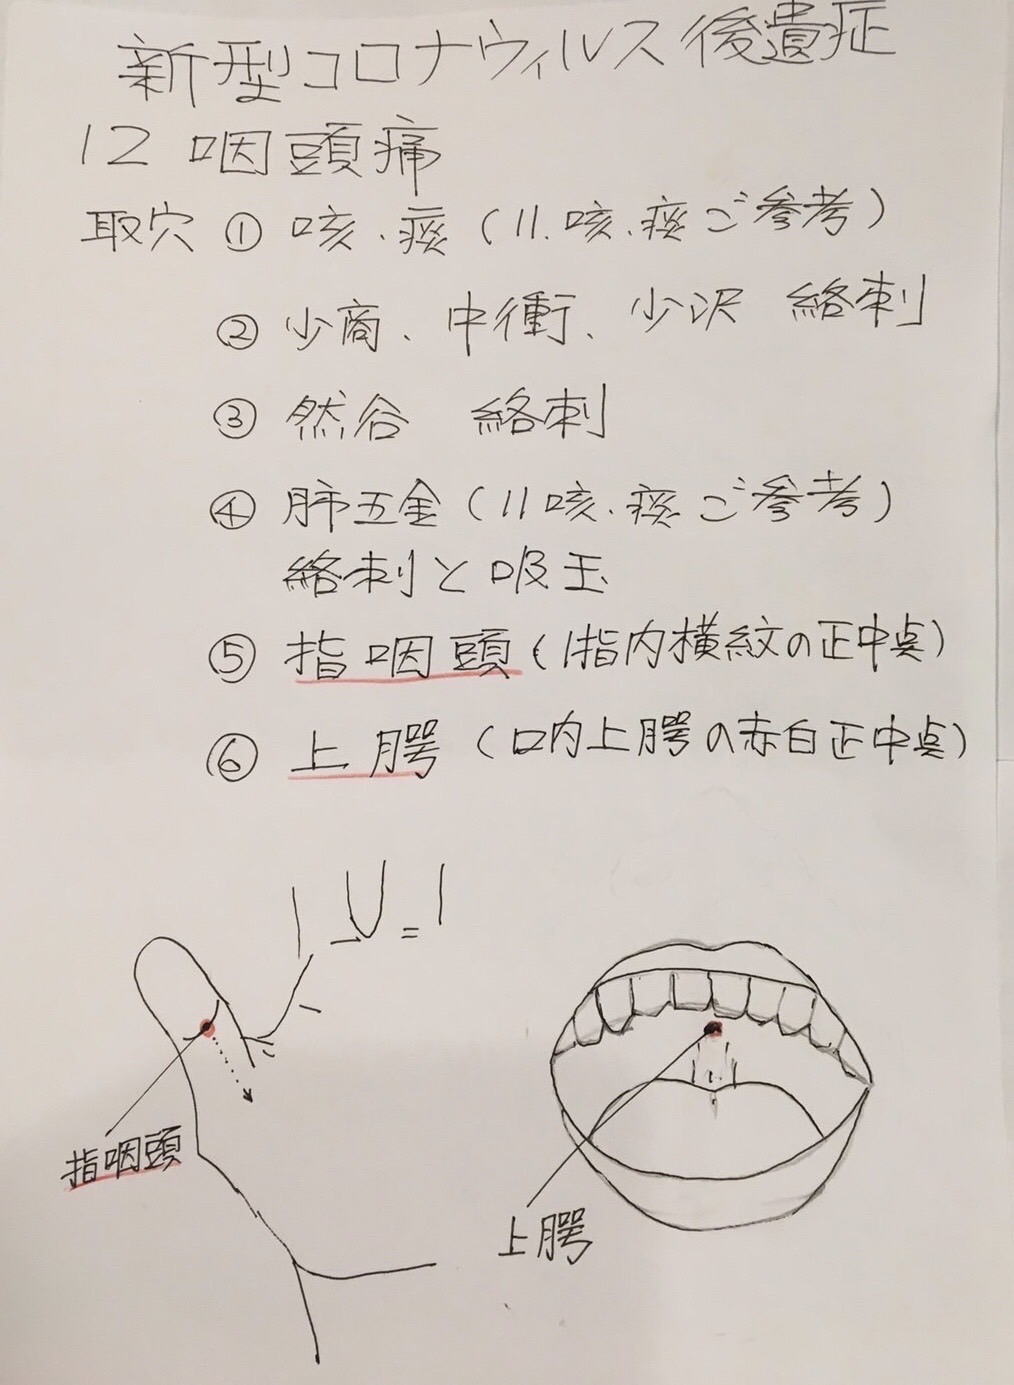 新型コロナウィルス後遺症
12 咽頭痛
取穴 ① 咳、痰(11.咳、痰ご参考)
② 少商、中衝、少沢 絡刺
③ 然谷 絡刺
④ 肺五金(11咳、痰ご参考)
絡刺と吸玉
⑤ 指咽頭(1指内横紋の正中点)
⑥ 上腭(口内上腭の赤白正中点)
指咽頭
上腭